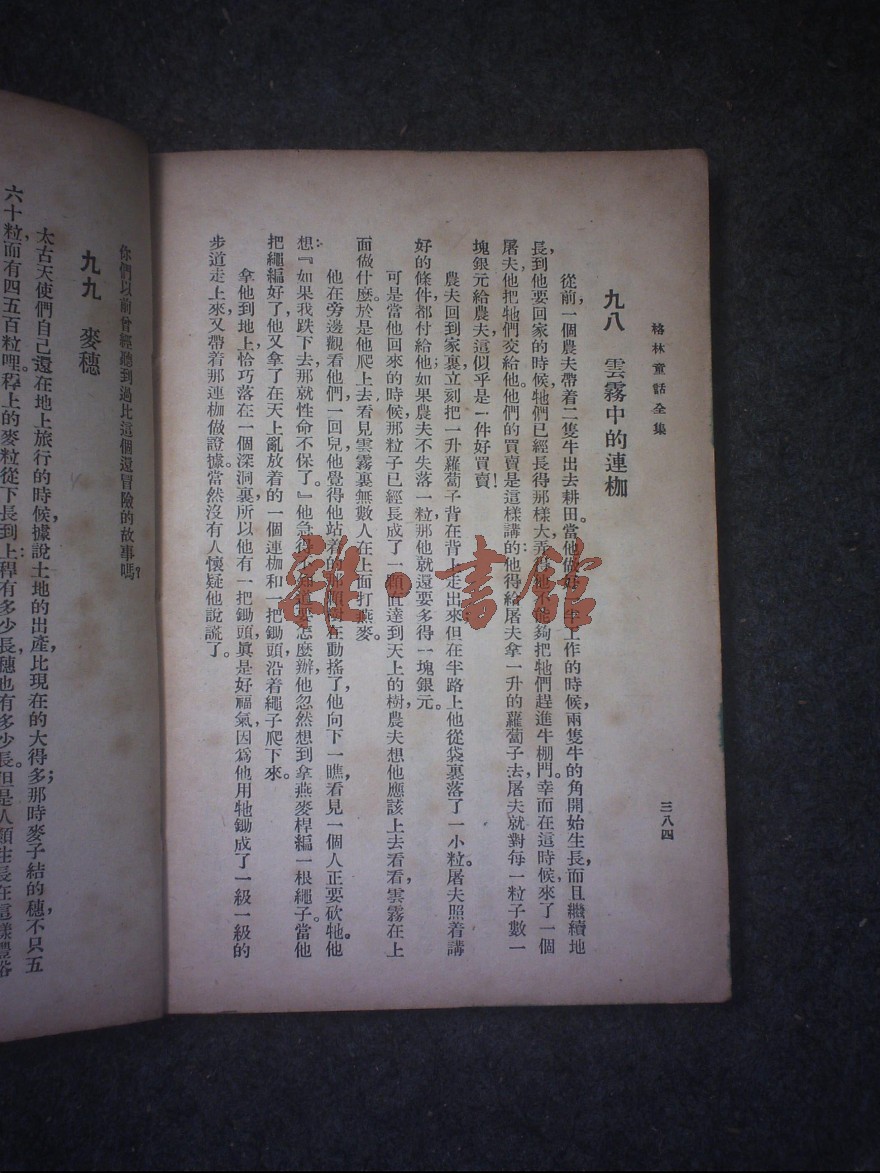 格林童話全集
三八四
九八　雲霧中的連枷
從前，一個農夫帶着二隻牛出去耕田。當他做好工作的時候，兩隻牛的角開始生長，而且繼續地
長，到他要回家的時候，牠們已經長得那樣大，弄得他不能夠把牠們趕進牛棚門。幸而在這時候，來了一個
屠夫，他把牠們交給他。他們的買賣是這樣講的：他得給屠夫拿一升的蘿蔔子去，屠夫就對每一粒子數一
塊銀元給農夫。這似乎是一件好買賣！
農夫回到家裏，立刻把一升蘿蔔子背在背上走出來；但在半路上他從袋裏落了一小粒。屠夫照着講
好的條件都付給他；如果農夫不失落一粒，那他就還要多得一塊銀元。
可是當他回來的時候，那粒子已經長成了一顆直達到天上的樹。農夫想他應該上去看看，雲霧在上
面做什麼。於是他爬上去，看見雲霧裏無數人在上面打燕麥。
他在旁邊觀看他們，一回兒，他覺得他站着的那顆樹在動搖了，他向下一瞧，看見一個人正要砍牠。他
想：『如果我跌下去，那就性命不保了。』他急得不知道要怎麼辦，他忽然想到拿燕麥桿編一根繩子。當他
把繩編好了，他又拿了在天上亂放着的一個連枷和一把鋤頭，沿着繩子爬下來。
拿他到地上，恰巧落在一個深洞裏，所以他有一把鋤頭，眞是好福氣，因爲他用牠鋤成了一級一級的
步道走上來，又帶着那連枷做證據，當然沒有人懷疑他說謊了。
雜·書館
你們以前曾經聽到過比這個還冒險的故事嗎？
九九　麥穗
太古天使們自己還在地上旅行的時候，據說土地的出產比現在的大得多；那時麥子結的穗，不只五
六十粒，而有四五百粒哩。稃上的麥粒從下長到上，稈有多少長，穗也有多少長。但是人類生長在這樣豐裕